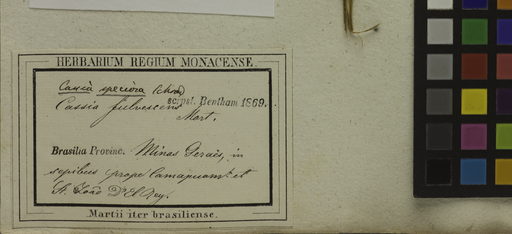 HERBARIUM REGIUM MONACENSE.
Cassia speciosa Schrad
scrpst. Bentham 1869.
Cassia fulvescens
Mart.
Brasilia Provinc. Minas Geraës, in
sepibus prope Camapuam et
St. João D'El Rey.
Martii iter brasiliense.